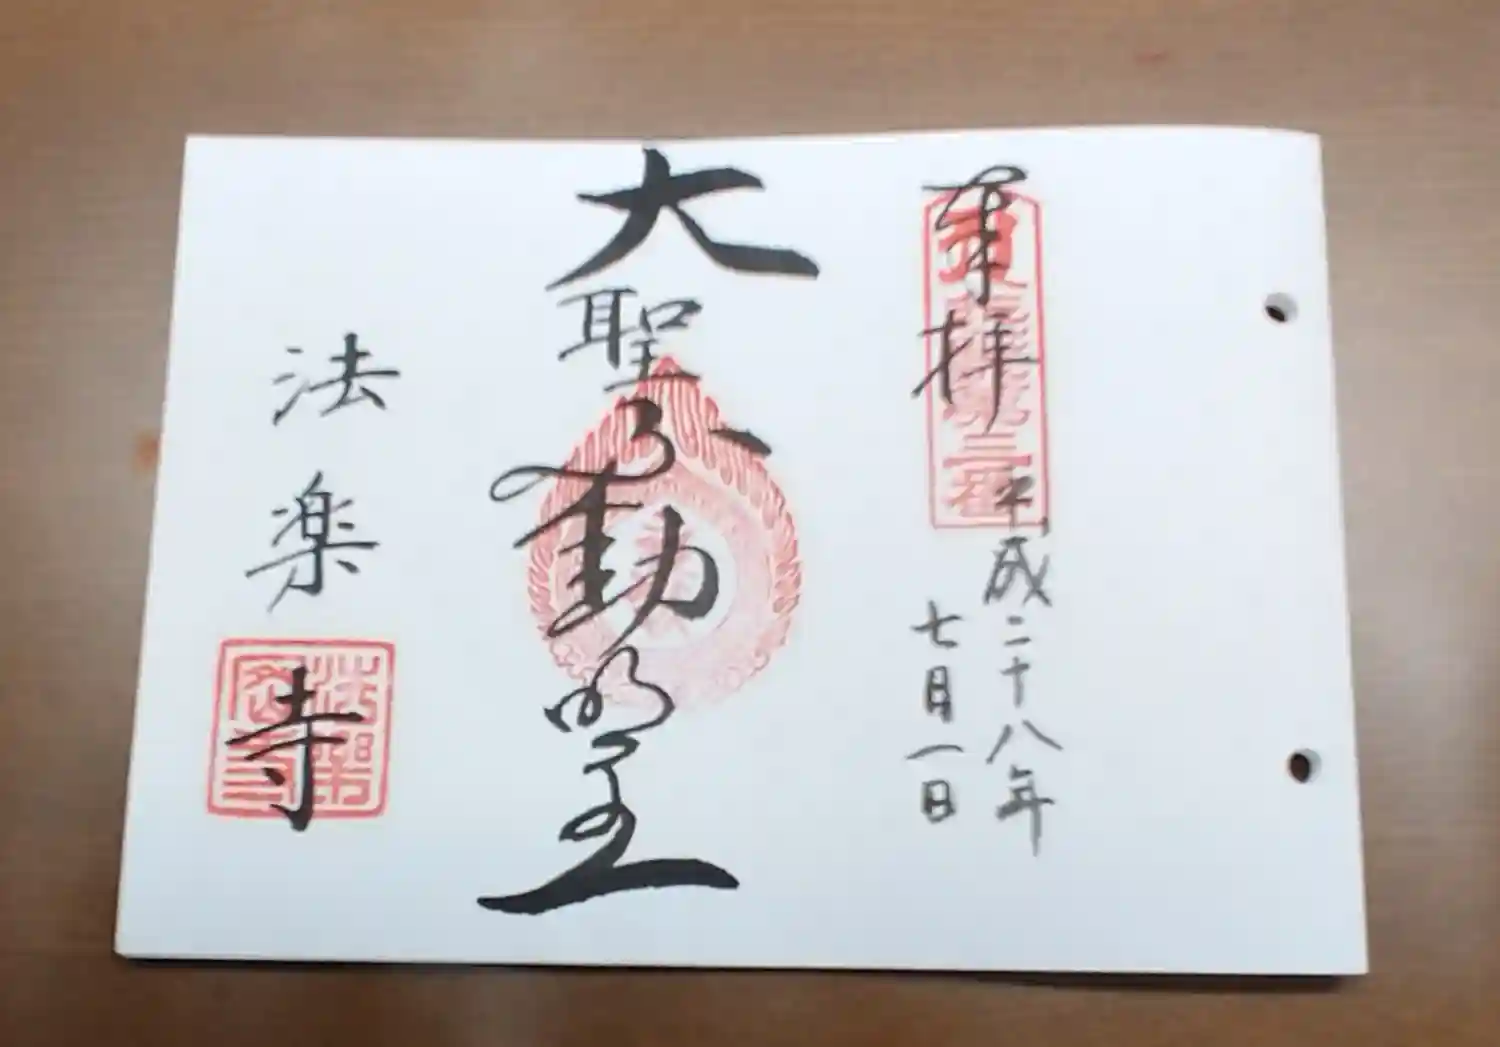 奉拝
平成二十八年
七月一日
大聖不動明王
法楽寺
法楽寺